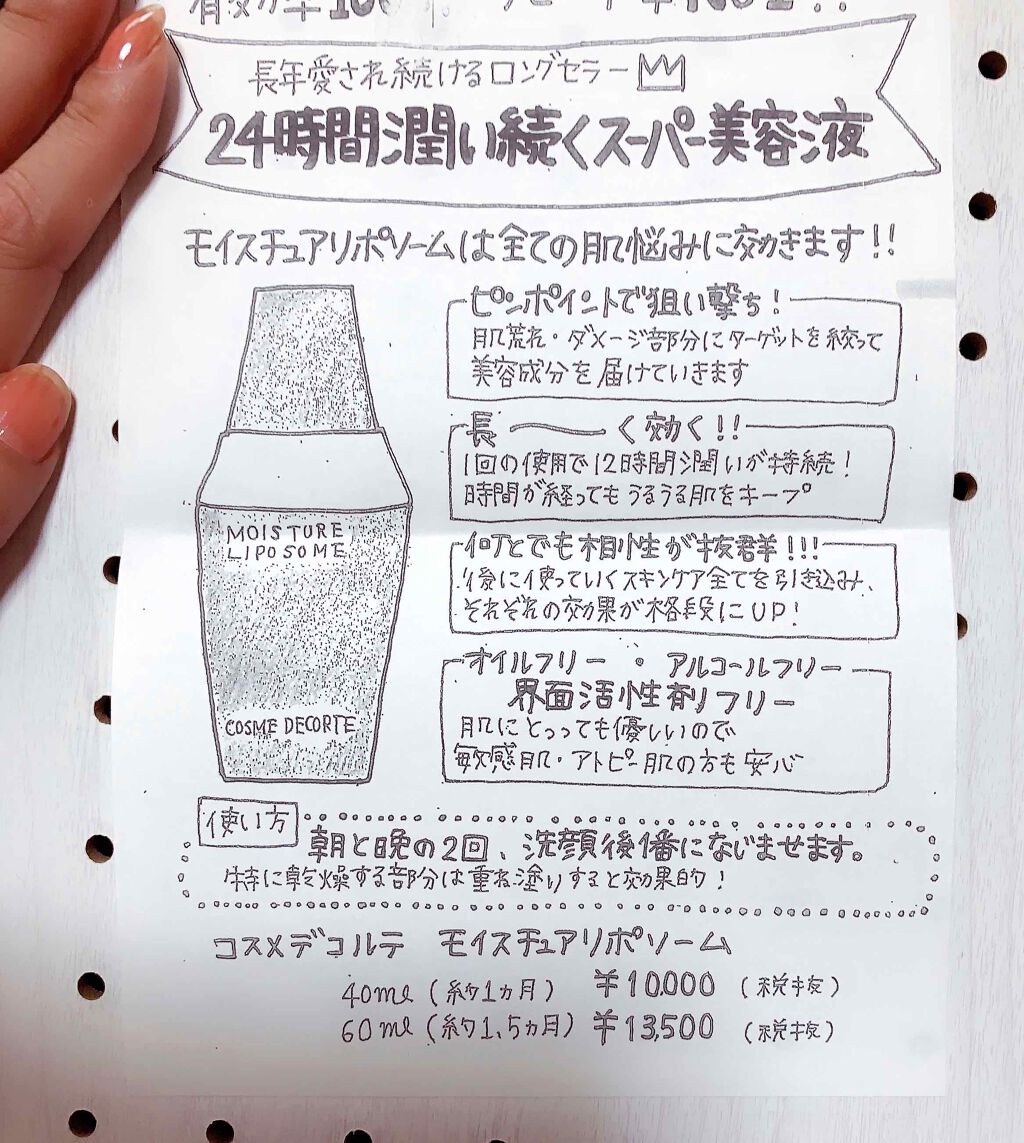 長年愛され続けるロングセラー
24時間潤い続くスーパー美容液
モイスチュアリポソームは全ての肌悩みに効きます!!
ピンポイントで狙い撃ち!
肌荒れ・ダメージ部分にターゲットを絞って
美容成分を届けていきます
長〜く効く!!
1回の使用で12時間潤いが持続!
時間が経ってもうるうる肌をキープ
何とでも相性が抜群!!!
後に使っていくスキンケア全てを引き込み、
それぞれの効果が格段にUP!
オイルフリー ・ アルコールフリー
界面活性剤フリー
肌にとっっても優しいので
敏感肌・アトピー肌の方も安心
MOISTURE
LIPOSOME
COSME DECORTE
使い方
朝と晩の2回、洗顔後1番になじませます。
特に乾燥する部分は重ね塗りすると効果的!
コスメデコルテ モイスチュアリポソーム
40ml (約1ヵ月) ¥10,000 (税抜)
60ml (約1.5ヵ月) ¥13,500 (税抜)